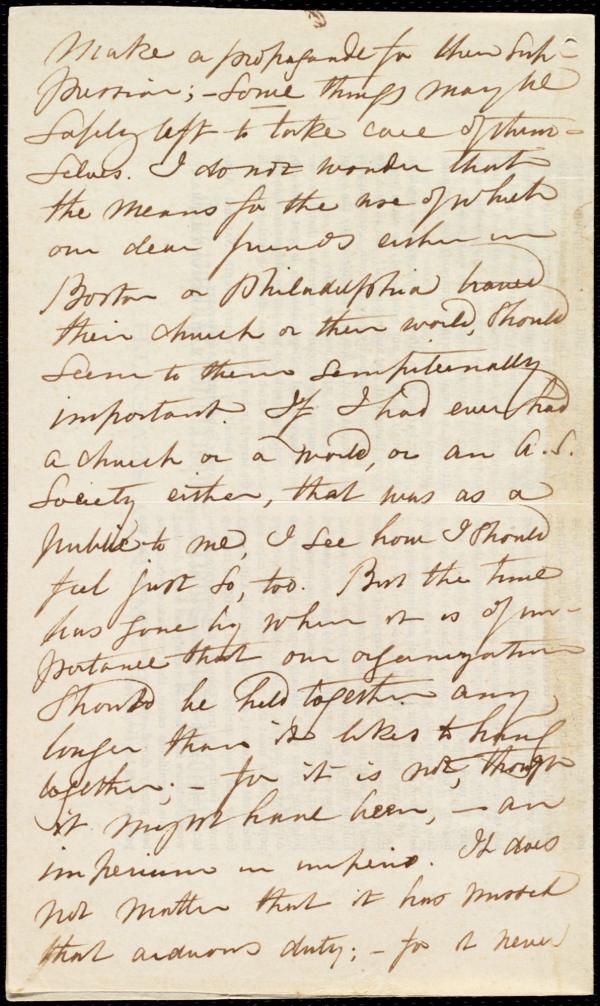 make a propaganda for their sup-
pression; – some things may be
safely left to take care of them-
selves. I do not wonder that
the means for the use of which
our dear friends either in
Boston or Philadelphia braved
their church or their world, should
seem to them sempiternally
important. If I had ever had
a church or a world, or an A. S.
Society either, that was as a
public to me, I see how I should
feel just so, too. But the time
has gone by when it is of im-
portance that our organization
should be held together any
longer than it likes to hang
together; – for it is not, though
it might have been, – an
imperium in imperio. It does
not matter that it has missed
that arduous duty; – for it never